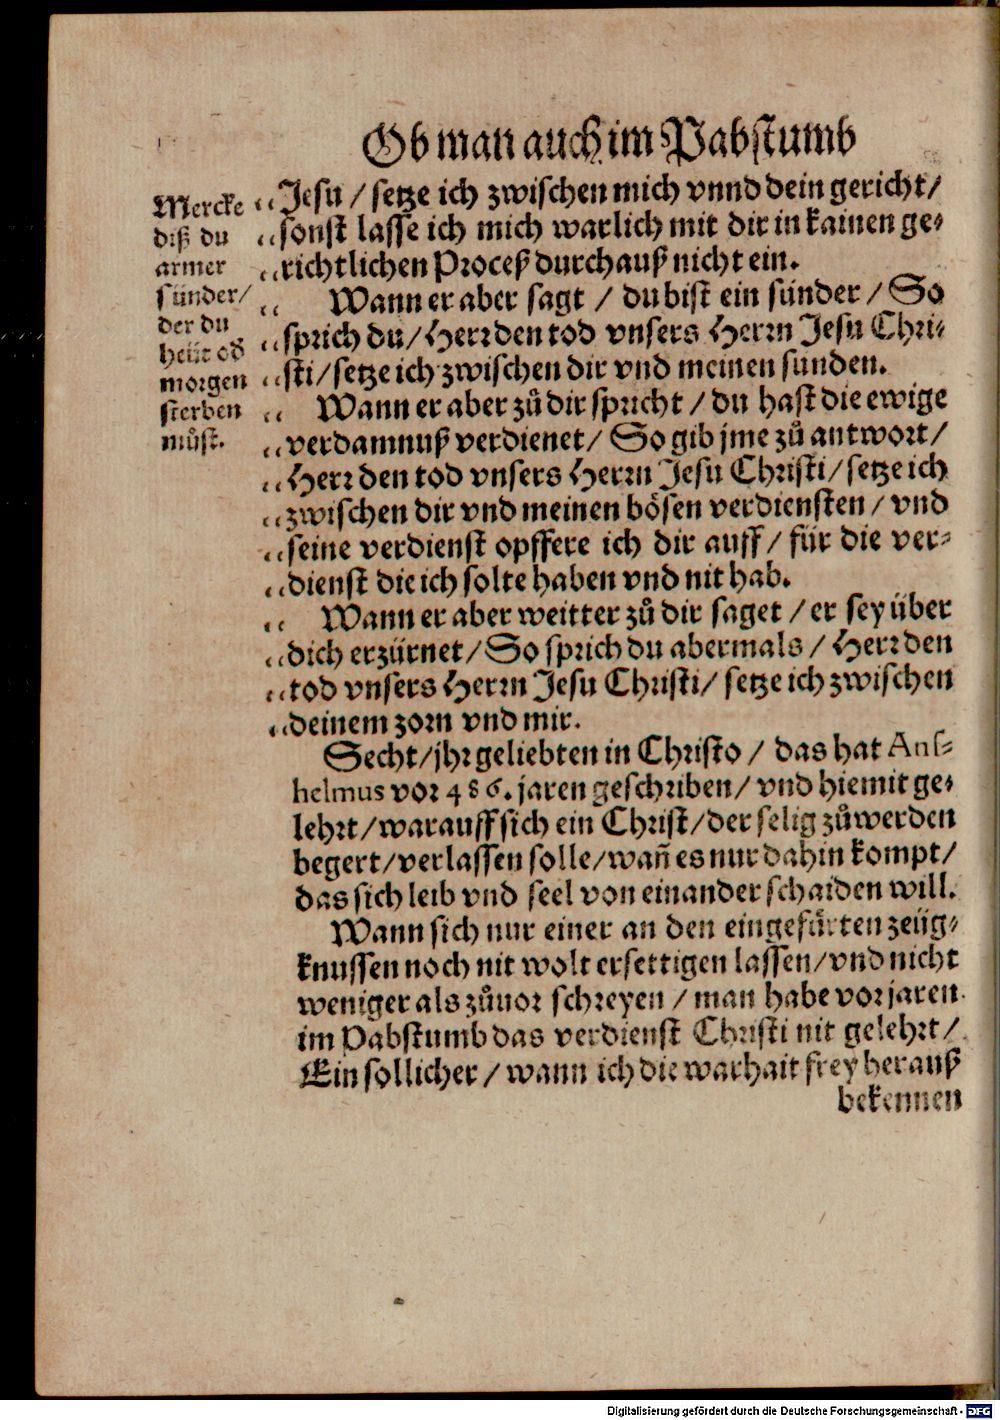 Ob man auch im Pabstumb
Mercke
diß du
armer
sünder/
der du
heüt od
morgen
sterben
müst.
„Jesu / setze ich zwischen mich vnnd dein gericht/
„sonst lasse ich mich warlich mit dir in kainen ge-
„richtlichen Proceß durchauß nicht ein.
„ Wann er aber sagt / du bist ein sünder / So
„sprich du/ Herr den tod vnsers Herrn Jesu Chri-
„sti/ setze ich zwischen dir vnd meinen sünden.
„ Wann er aber zů dir spricht / du hast die ewige
„verdamnuß verdienet/ So gib jme zů antwort/
„Herr den tod vnsers Herrn Jesu Christi/ setze ich
„zwischen dir vnd meinen bösen verdiensten / vnd
„seine verdienst opffere ich dir auff / für die ver-
„dienst die ich solte haben vnd nit hab.
„ Wann er aber weitter zů dir saget / er sey über
„dich erzürnet/ So sprich du abermals / Herr den
„tod vnsers Herrn Jesu Christi/ setze ich zwischen
„deinem zorn vnd mir.
Secht/ jhr geliebten in Christo / das hat Ans-
helmus vor 486. jaren geschriben/ vnd hiemit ge-
lehrt/ warauff sich ein Christ/ der selig zůwerden
begert/ verlassen solle/ wañ es nur dahin kompt/
das sich leib vnd seel von einander schaiden will.
Wann sich nur einer an den eingefürten zeüg-
knussen noch nit wolt ersettigen lassen/ vnd nicht
weniger als zůuor schreyen / man habe vor jaren
im Pabstumb das verdienst Christi nit gelehrt/
Ein sollicher / wann ich die warhait frey herauß
bekennen
Digitalisierung gefördert durch die Deutsche Forschungsgemeinschaft - DFG